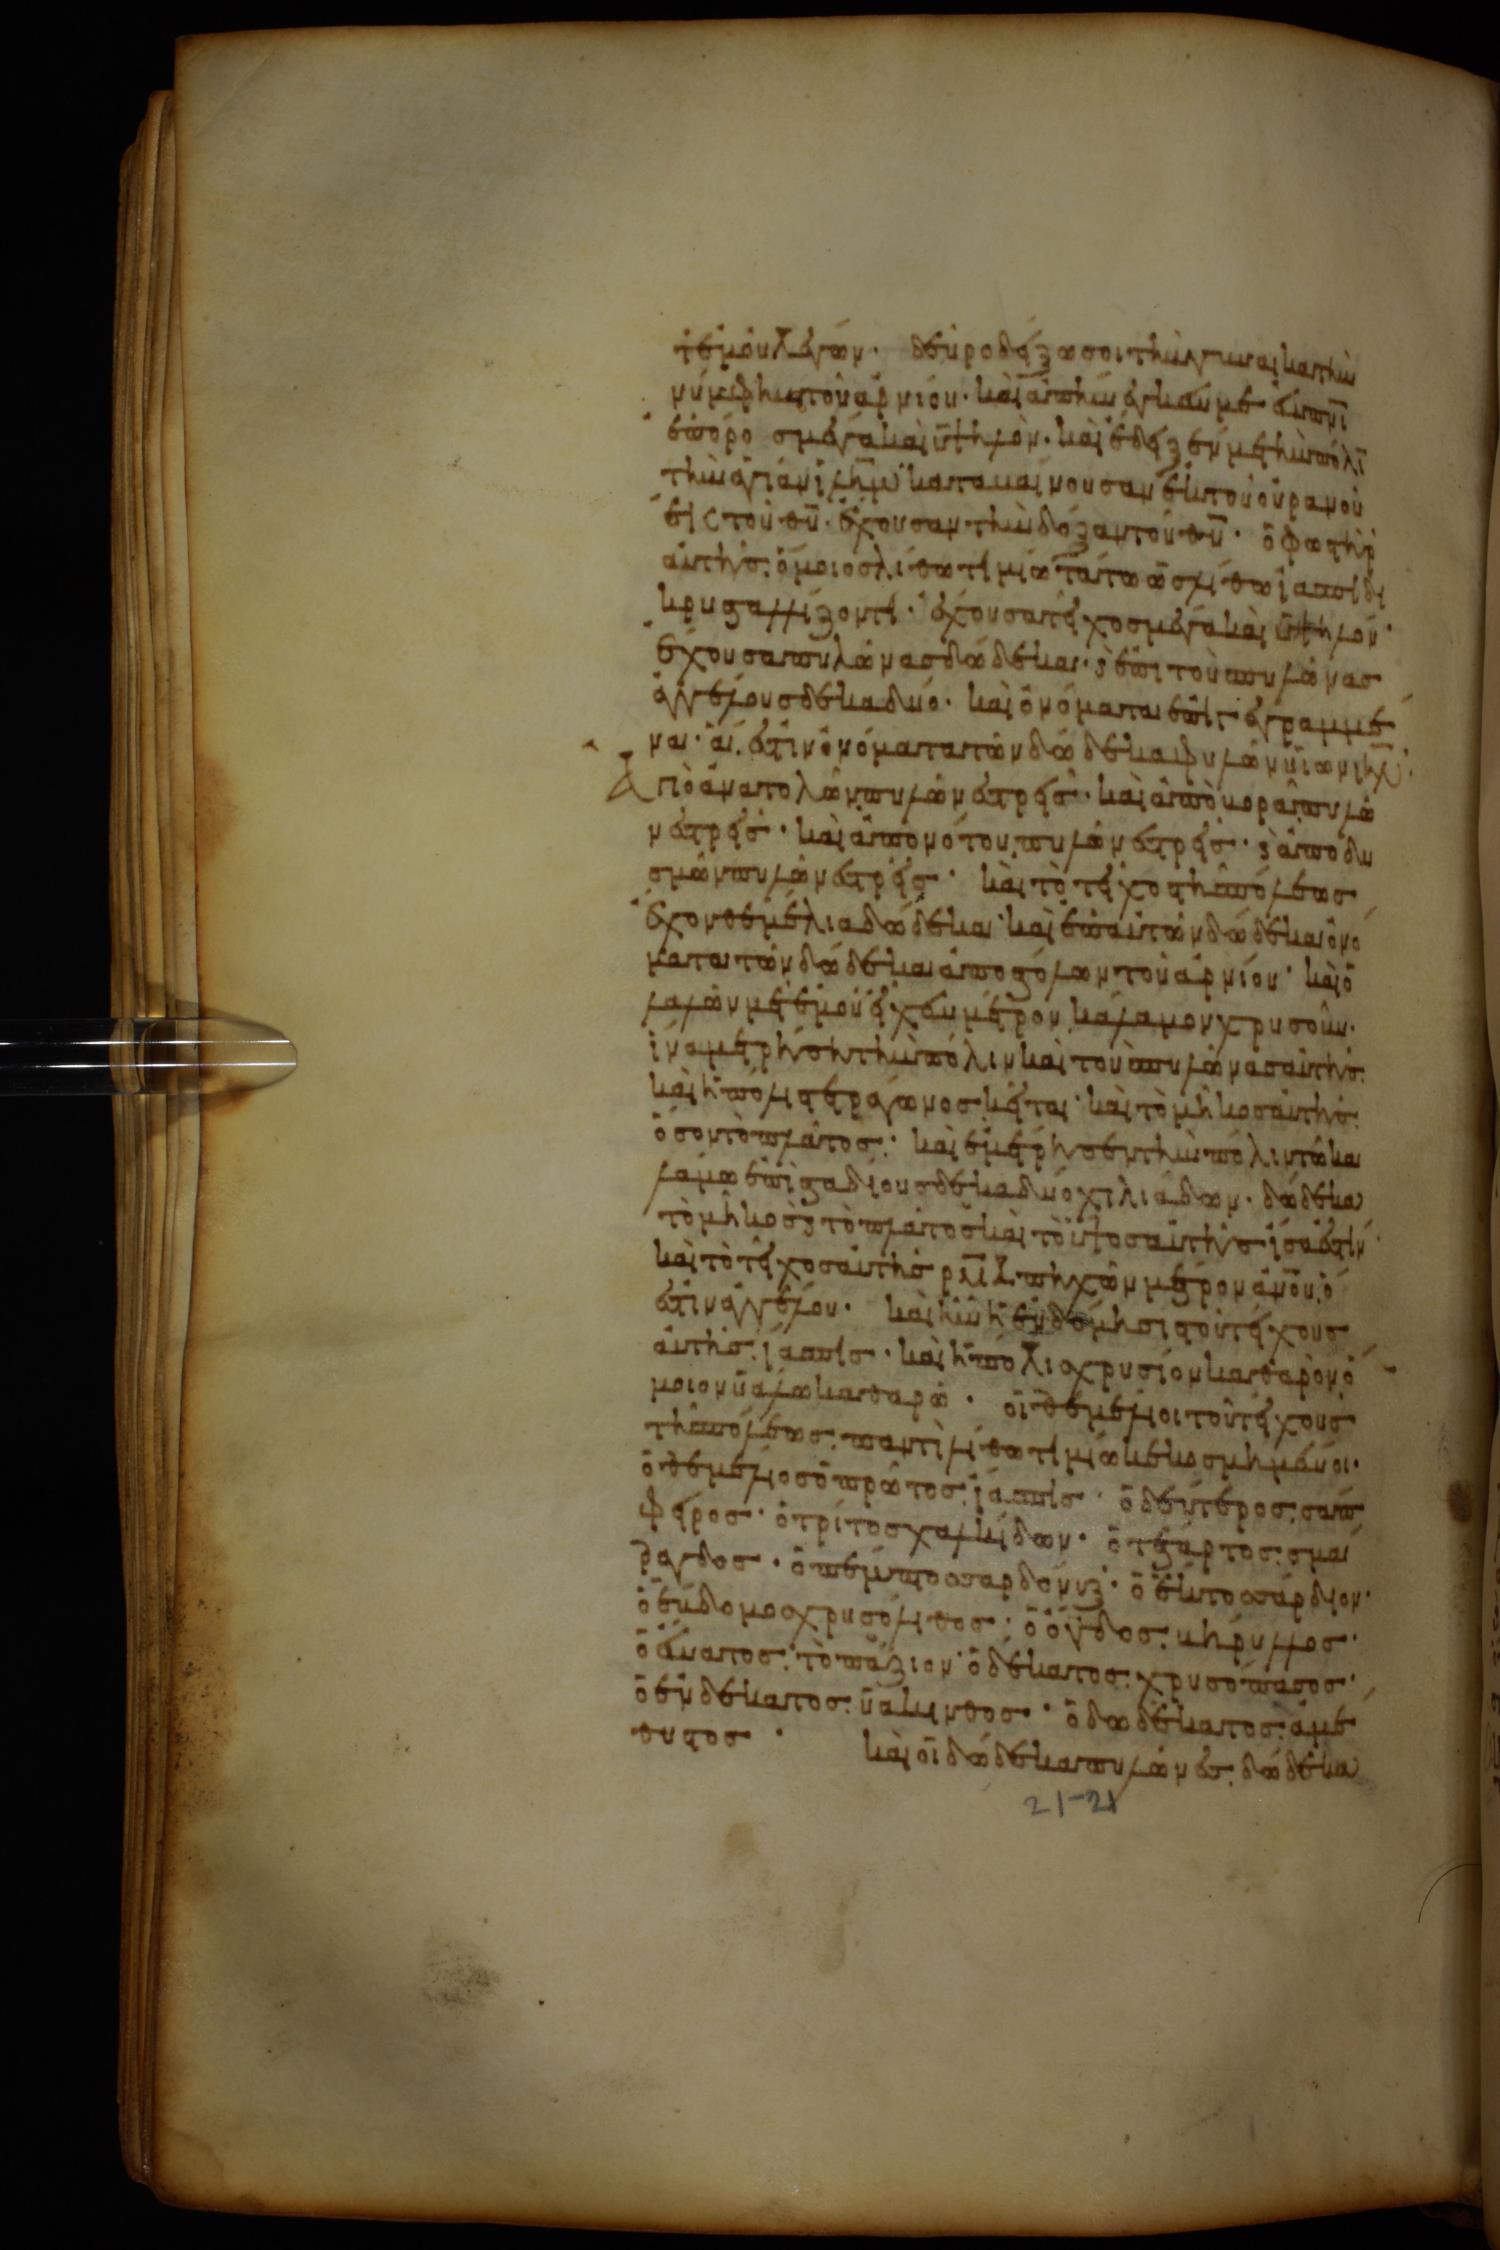 τεμοῦ λέγων· δεῦρο δείξω σοι τὴν γυναῖκα τὴν
νύμφην τοῦ ἀρνίου· καὶ ἀπήνεγκέν με ἐν πνι
ἐπ' ὄρος μέγα καὶ ὑψηλὸν· καὶ ἔδειξέν μοι τὴν πόλιν
τὴν ἁγίαν ιλημ καταβαίνουσαν ἐκ τοῦ οὐρανοῦ
ἐκ τοῦ θυ· ἔχουσαν τὴν δόξαν τοῦ θυ· ὁ φωστὴρ
αὐτῆς· ὅμοιος λίθω τιμιωτάτω ὡς λίθω ἰάσπιδι
κρυσταλλίζοντι· ἔχουσα τεῖχος μέγα καὶ ὑψηλὸν·
ἔχουσα πυλῶνας δώδεκα· ϗ ἐπὶ τοὺς πυλῶνας
ἀγγέλους δεκαδύο· καὶ ὀνόματα ἐπιγεγραμμέ
να· ἅ ἐστιν ὀνόματα τῶν δώδεκα φυλῶν υἱῶν ιηλ·
Ἀπὸ ἀνατολῶν πυλῶνες τρεῖς· καὶ ἀπὸ βορᾶ πυλῶ
νες τρεῖς· καὶ ἀπὸ νότου πυλῶνες τρεῖς· ϗ ἀπὸ δυ
σμῶν πυλῶνες τρεῖς· καὶ τὸ τεῖχος τῆς πόλεως
ἔχον θεμέλια δώδεκα· καὶ ἐπ' αὐτῶν δώδεκα ὀνό
ματα τῶν δώδεκα ἀποστόλων τοῦ ἀρνίου· καὶ ὁ
λαλῶν μετ' ἐμοῦ εἶχεν μέτρον κάλαμον χρυσοῦν·
ἵνα μετρήση τὴν πόλιν καὶ τοὺς πυλῶνας αὐτῆς·
καὶ ἡ πόλις τετράγωνος κεῖται· καὶ τὸ μῆκος αὐτῆς
ὅσον τὸ πλάτος· καὶ ἐμέτρησεν τὴν πόλιν τῶ κα
λάμω ἐπὶ σταδίους δεκαδύο χιλιάδων· δώδεκα
τὸ μῆκος ϗ τὸ πλάτος καὶ τὸ ὕψος αὐτῆς ἴσα ἐστίν·
καὶ τὸ τεῖχος αὐτῆς ρμδ πηχῶν μέτρον ἀνου ὅ
ἐστιν ἀγγέλου· καὶ ἦν ἡ ἐνδόμησις τοῦ τείχους
αὐτῆς· ἴασπις· καὶ ἡ πόλις χρυσίον καθαρὸν ὅ
μοιον ὑάλω καθαρῶ· οἱ θεμέλιοι τοῦ τείχους
τῆς πόλεως· παντὶ λίθω τιμίω κεκοσμημένοι·
ὁ θεμέλιος ὁ πρῶτος· ἴασπις· ὁ δεύτερος· σαπ
φειρος· ὁ τρίτος χαλκιδων· ὁ τέταρτος· σμα
ραγδος· ὁ πέμπτος σαρδόνυξ· ὁ ἕκτος σάρδιον·
ὁ ἕβδομος χρυσόλιθος· ὁ ὄγδοος· βήρυλλος·
ὁ ἔνατος· τοπάζιον· ὁ δέκατος· χρυσόπασος·
ὁ ἑνδέκατος· ὑάκινθος· ὁ δωδέκατος· ἀμέ
θυστος· καὶ οἱ δώδεκα πυλῶνες· δώδεκα
21-21